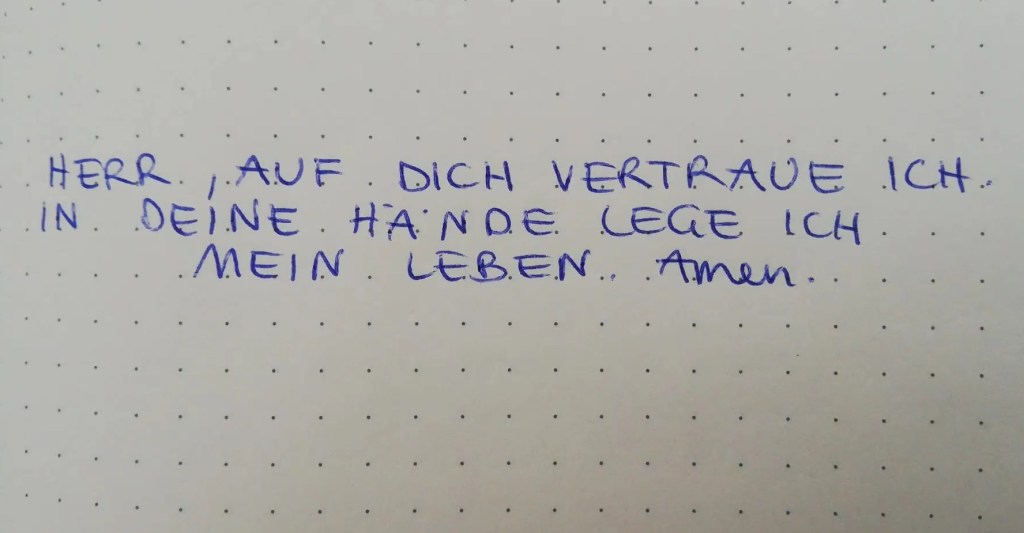 HERR, AUF DICH VERTRAUE ICH.
IN DEINE HÄNDE LEGE ICH
MEIN LEBEN. Amen.